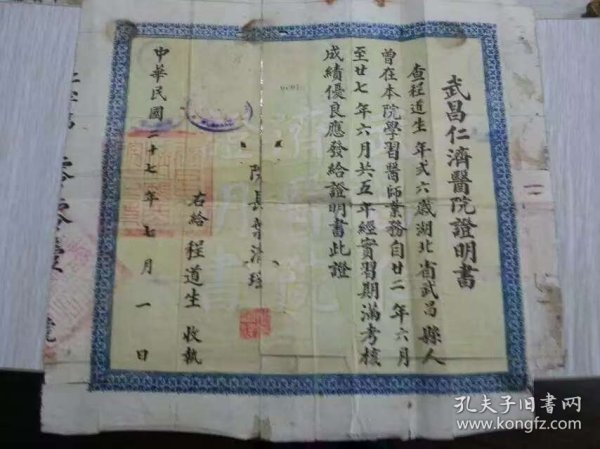 武昌仁濟醫院證明書
查程道生年弍六歲湖北省武昌縣人
曾在本院學習醫師業務自廿二年六月
至廿七年六月共五年經實習期滿考核
成績優良應發給證明書此證
院長
右給 程道生 收執
中華民國二十七年七月一日
孔夫子旧书网
www.kongfz.com